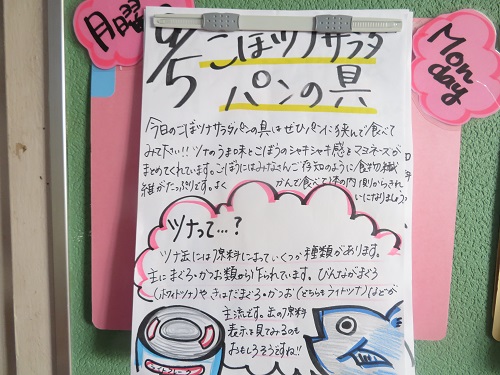 月曜
9/5
Monday
ごぼうツナサラダ
パンの具
今日のごぼうツナサラダパンの具はぜひパンに挟んで食べて
みて下さい!!ツナのうま味とごぼうのシャキシャキ感をマヨネーズが
まとめてくれています。ごぼうにはみなさんご存知のように食物繊
維がたっぷりです。よくかんで食べて体の内側からきれ
いになりましょう♪
ツナって…?
ツナ缶には原料によっていくつか種類があります。
主にまぐろ・かつお類から作られています。びんながまぐろ
(ホワイトツナ)やきはだまぐろ・かつお(どちらもライトツナ)などが
主流です。缶の原料
表示を見てみるのも
おもしろそうですね!!